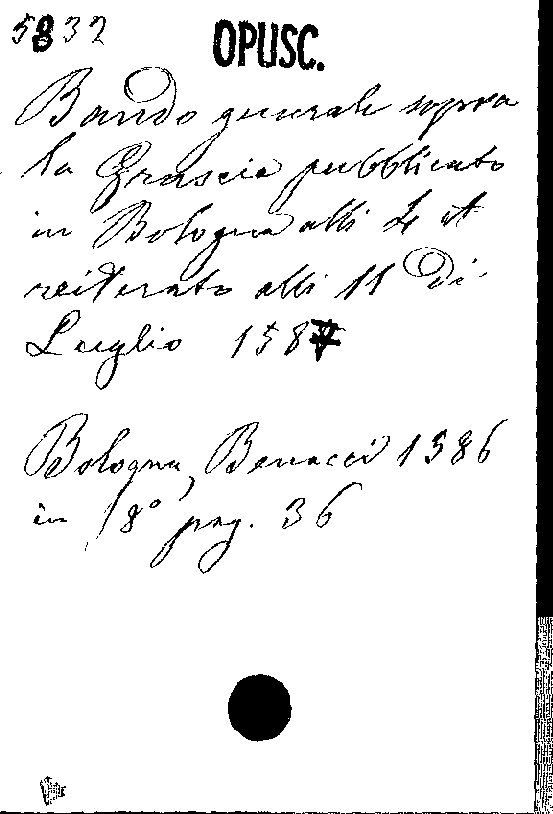 5832
OPUSC.
Bando generale sopra
la Grascia pubblicato
in Bologna alli 4 et
reiterato alli 11 di
Luglio 158
Bologna, Benacci 1586
in 8° pag. 36